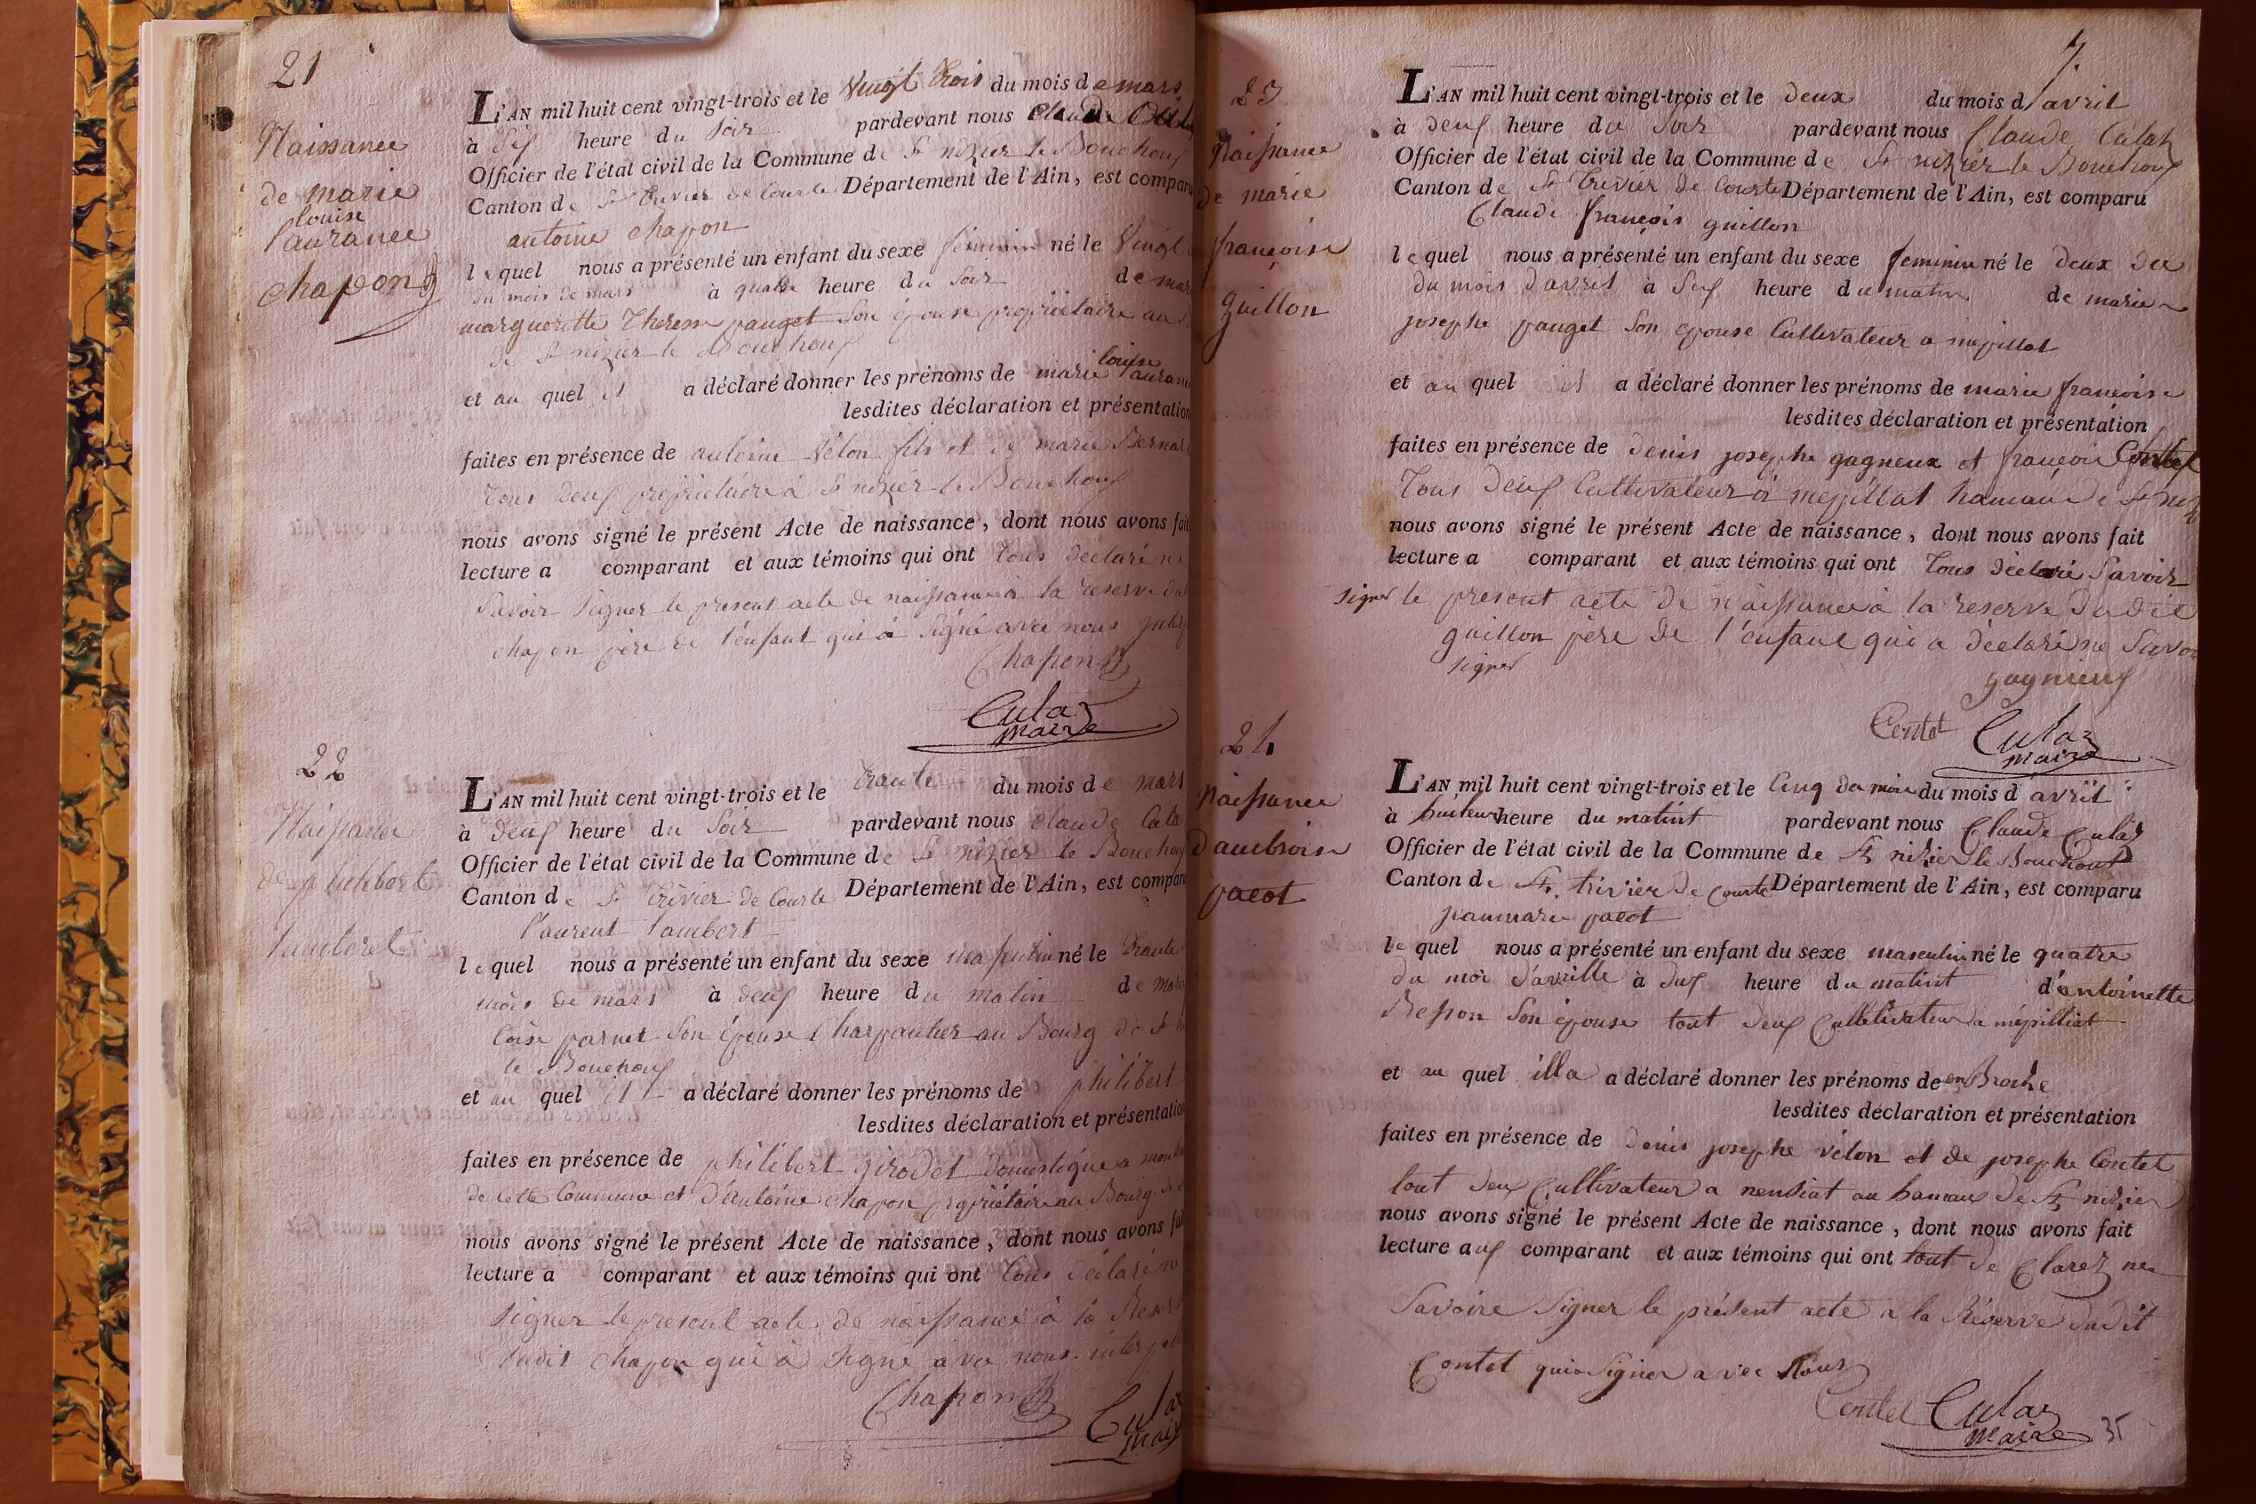 21
Naissance
de marie
louise
laurance
chapon
L'AN mil huit cent vingt-trois et le vingt trois du mois de mars
à six heure du soir pardevant nous Claude
Officier de l'état civil de la Commune de St nizier le Bouchoux
Canton de St trivier de Courte Département de l'Ain, est compar
antoine chapon
lequel nous a présenté un enfant du sexe féminin né le vingt
du mois de mars à quatre heure du soir de mar
margueritte Therese pauget son épouse propriétaire au
de St nizier le Bouchoux
et au quel il a déclaré donner les prénoms de marie louise lauran
lesdites déclaration et présentation
faites en présence de antoine Vélon fils et de marie Bernar
tous deux propriétaire à St nizier le Bouchoux
nous avons signé le présent Acte de naissance, dont nous avons fait
lecture a comparant et aux témoins qui ont tous déclaré ne
savoir signer le present acte de naissance à la reserve du
chapon père de l'enfant qui a signé avec nous
Chapon
Culaz
maire
22
Naissance
de philibert
lambert
L'AN mil huit cent vingt-trois et le trante du mois de mars
à deux heure du soir pardevant nous claude Cula
Officier de l'état civil de la Commune de St nizier le Bouchoux
Canton de St trivier de Courte Département de l'Ain, est compar
laurent lambert
lequel nous a présenté un enfant du sexe masculin né le trante
mois de mars à deux heure du matin de mar
loise parnet son épouse charpantier au Bourg de St
le Bouchoux
et au quel il a déclaré donner les prénoms de philibert
lesdites déclaration et présentation
faites en présence de philibert girodet domestique a
de cette Commune et d'antoine chapon propriétaire au Bourg
nous avons signé le présent Acte de naissance, dont nous avons fai
lecture a comparant et aux témoins qui ont tous déclaré
signer le present acte de naissance à la Reser
dudit chapon qui a signé avec nous
Chapon
Culaz
maire
7
23
Naissance
de marie
françoise
guillon
L'AN mil huit cent vingt-trois et le deux du mois d'avril
à deux heure du soir pardevant nous Claude Culaz
Officier de l'état civil de la Commune de St nizier le Bouchoux
Canton de St trivier de Courte Département de l'Ain, est comparu
Claude françois guillon
lequel nous a présenté un enfant du sexe feminin né le deux du
du mois d'avril à six heure du matin de marie
josephe pauget son epouse Cultivateur a mepillat
et au quel il a déclaré donner les prénoms de marie françoise
lesdites déclaration et présentation
faites en présence de denis josephe gagneux et françois Contet
tous deux Cultivateur à mepillat hameau de St niz
nous avons signé le présent Acte de naissance, dont nous avons fait
lecture a comparant et aux témoins qui ont tous déclaré savoir
signer le present acte de naissance à la reserve dudit
guillon père de l'enfant qui a déclaré ne savoir
signer
gagnieux
Contet Culaz
maire
24
Naissance
d'ambroise
pacot
L'AN mil huit cent vingt-trois et le cinq du mois du mois d'avril
à huiteur heure du matint pardevant nous Claude Culaz
Officier de l'état civil de la Commune de St nizier le Bouchout
Canton de St trivier de Courte Département de l'Ain, est comparu
jeanmarie pacot
lequel nous a présenté un enfant du sexe masculin né le quatre
du moi d'avrille à dix heure du matint d'antoinette
Besson son épouse tout deux Cultivateur a mépilliat
et au quel illa a déclaré donner les prénoms de enBroise
lesdites déclaration et présentation
faites en présence de denis josephe vélon et de josephe Contet
tout deux Cultivateur a nensiat au hamaux de St nizier
nous avons signé le présent Acte de naissance, dont nous avons fait
lecture aux comparant et aux témoins qui ont tout de Clarez ne
Savoire Signer le présent acte a la Réserve dudit
Contet qui a Signer avec Nous
Contet Culaz
maire
35